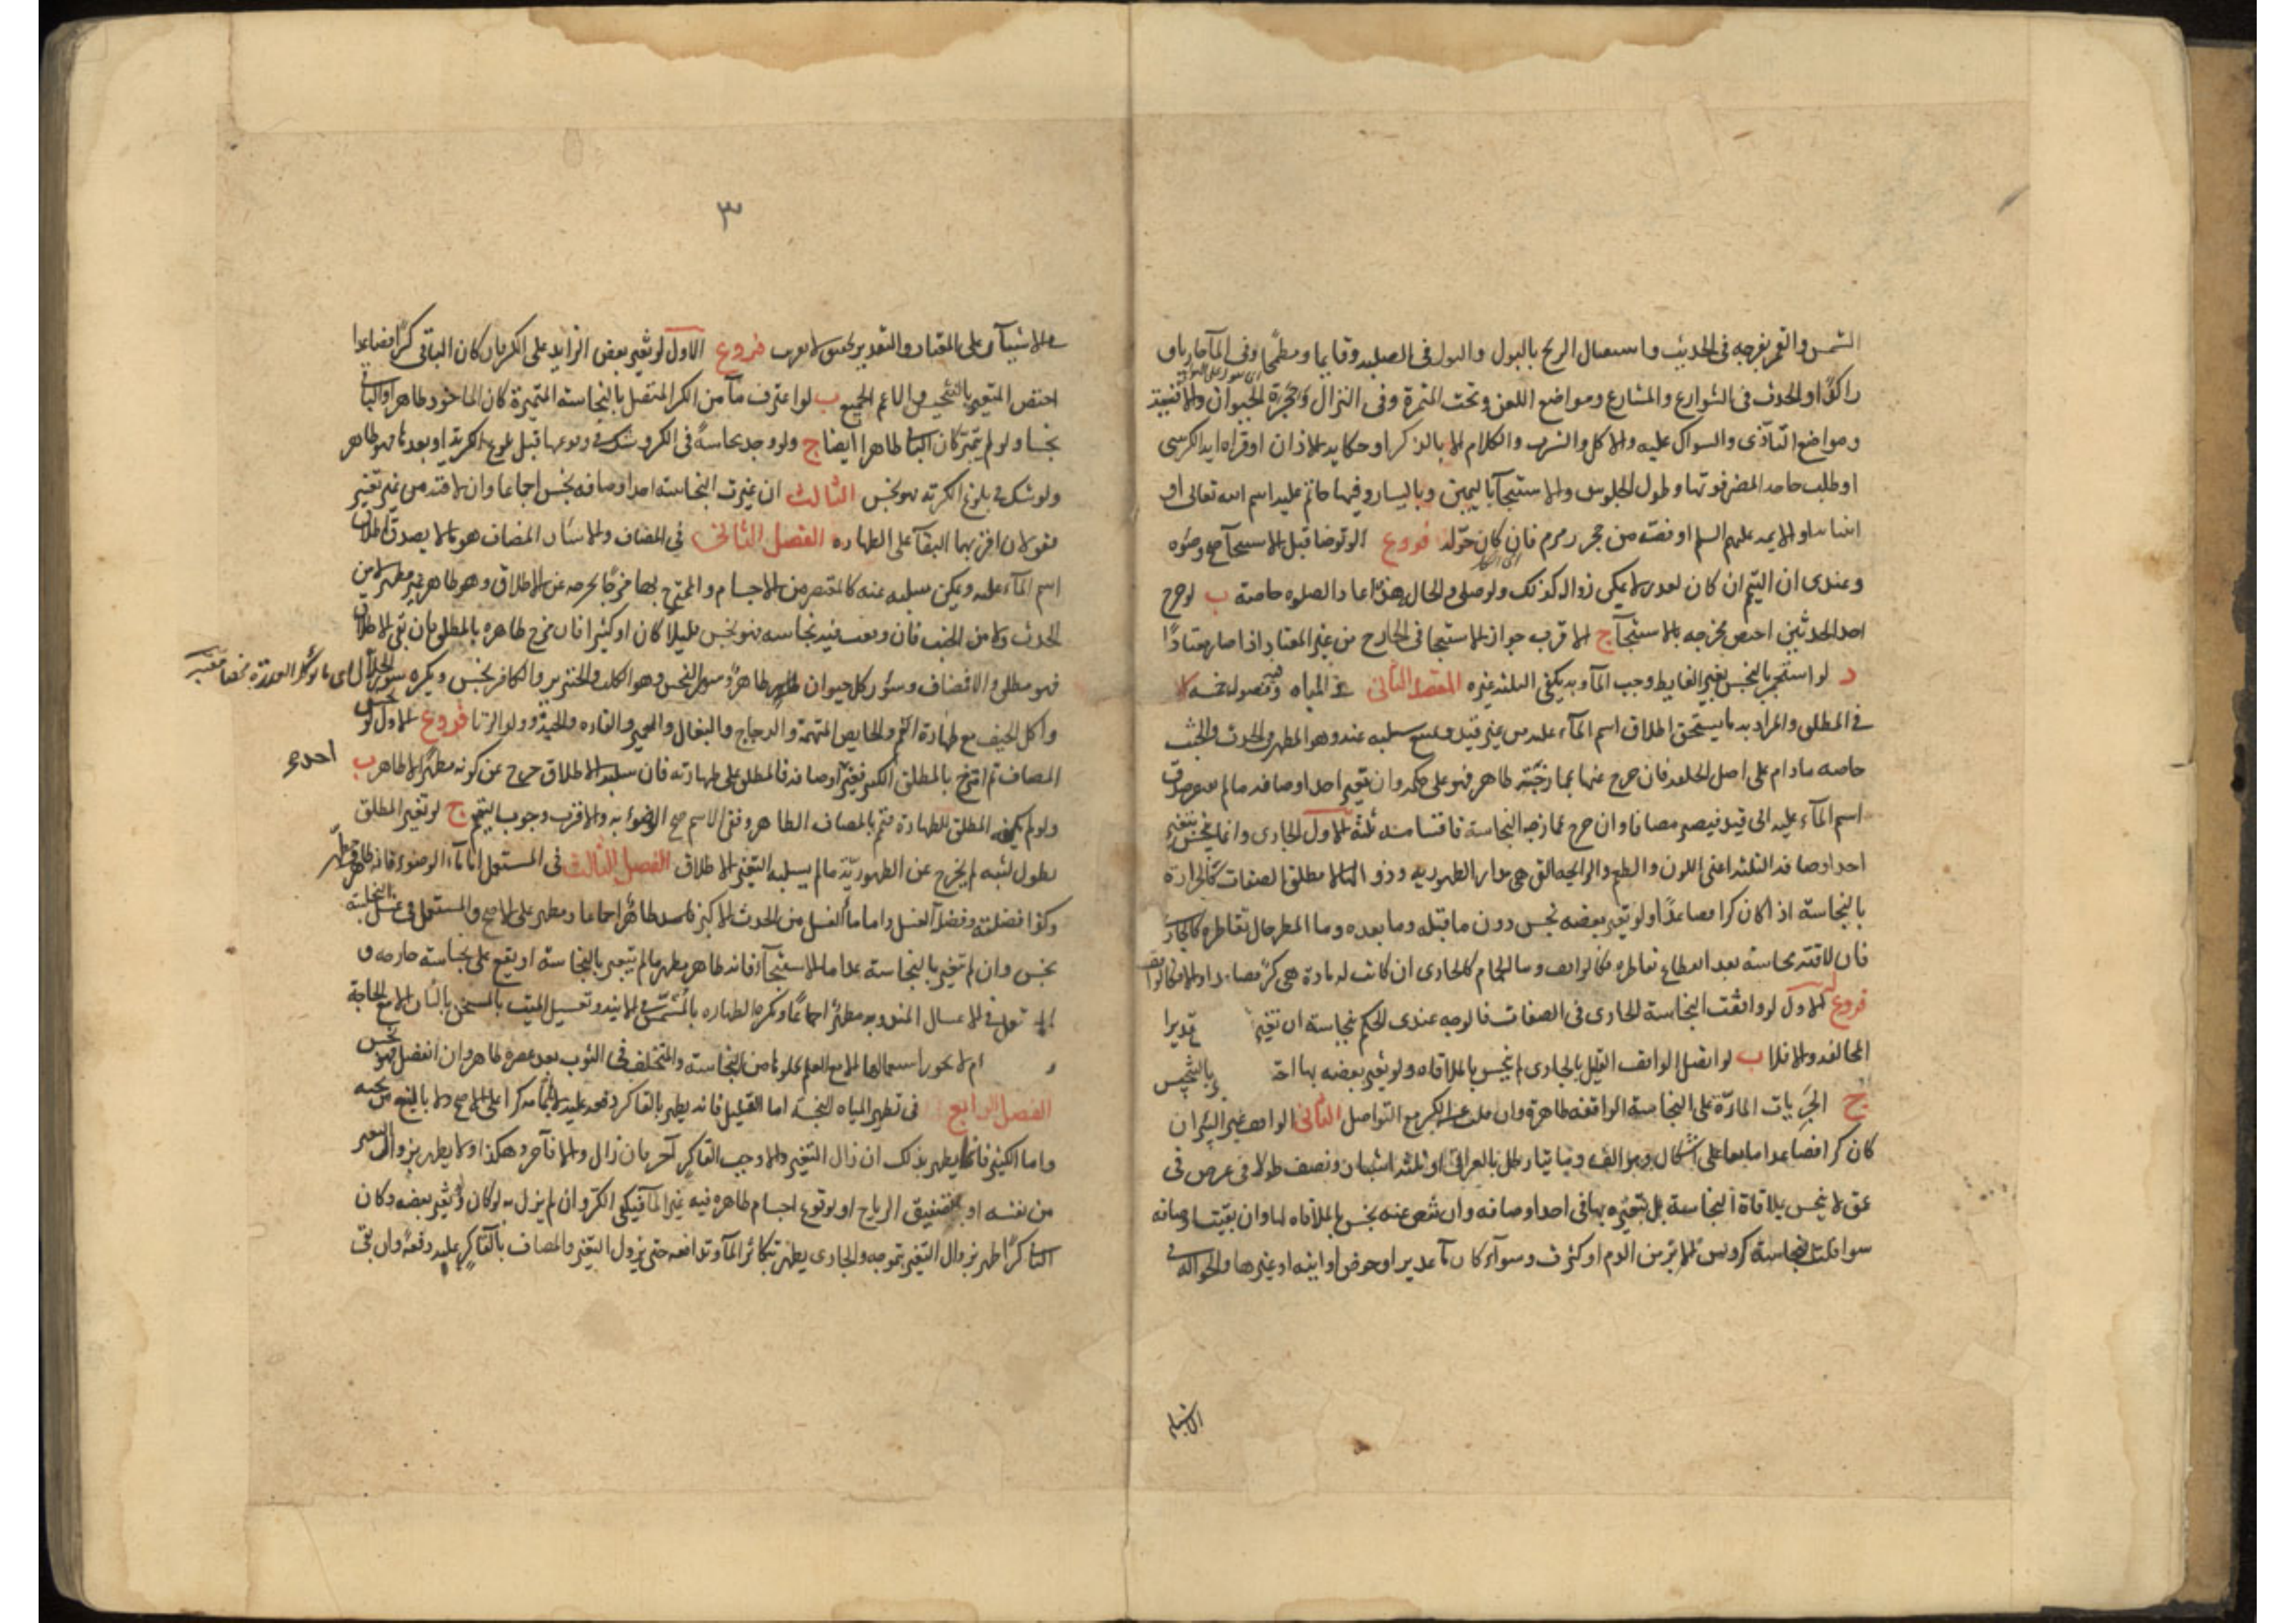 الشمس والقمر بفرجه في الحدثين واستقبال الريح بالبول والبول في الصلبة وقايما ومطمحا وفي المآ جاريا و
راكدا والحدث في الشوارع والمشارع ومواضع اللعن وتحت المثمرة وفي النزال وجحرة الحيوان والافنية
ومواضع التأذى والسواك عليه والاكل والشرب والكلام الا بالذكر او حكاية الاذان او قراءة اية الكرسى
او طلب حاجة المضر فوتها وطول الجلوس والاستنجآ باليمين وباليسار وفيها خاتم عليه اسم الله تعالى او
انبيائه او الايمة عليهم السلم او فصه من حجر زمزم فان كان حوله فروع ا لو توضا قبل الاستنجآ صح وضوه
وعندى ان التيمم ان كان لعذر لا يمكن زواله كذلك ولو صلى والحال هذه اعاد الصلوة خاصة ب لو خرج
احد الحدثين اختص مخرجه بالاستنجآ ج الاقرب جواز الاستنجا في الخارج من غير المعتاد اذا صار معتادا
د لو استجمر بالنجس بغير الغايط وجب المآ وبه يكفى الثلثة غيره المقصد الثاني في المياه وفصوله خمسة الا
في المطلق والمراد به ما يستحق اطلاق اسم المآء عليه من غير قيد ويمتنع سلبه عنه وهو المطهر من الحدث والخبث
خاصة ما دام على اصل الخلقة فان خرج عنها بممازجته طاهر فهو على حكمه وان تغير احد اوصافه ما لم يفتقر صدق
اسم المآء عليه الى قيد فيصير مضافا وان خرج بممازجة النجاسة فاقسامه ثلثة الاول الجارى وانما ينجس بتغير
احد اوصافه الثلثة اعنى اللون والطعم والرايحة التى هي مدار الطهورية وزوالها لا مطلق الصفات كالحرارة
بالنجاسة اذا كان كرا فصاعدا ولو تغير بعضه نجس دون ما قبله وما بعده وما المطر حال تقاطره كالجار
فان لاقته نجاسة بعد انقطاع تقاطره فكالواقف وما الحمام كالجارى ان كانت له مادة هى كر فصاعدا والا فكالواقف
فروع الاول لو وافقت النجاسة الجارى في الصفات فالوجه عندى الحكم بنجاسته ان تغير تقديرا
المخالفة والا فلا ب لو اتصل الواقف القليل بالجارى لم ينجس بالملاقاه ولو تغير بعضه بها اختص بالتنجيس
ج الجريات المارة على النجاسة الواقفة طاهرة وان قلت عن الكر مع التواصل الثاني الواقف غير البئر ان
كان كرا فصاعدا مايعا على اشكال هو الف ومايتا رطل بالعراقى او ثلثة اشبار ونصف طولا في عرض في
عمق لا ينجس بملاقاة النجاسة بل بتغيره بها في احد اوصافه وان نقص عنه نجس بالملاقاه لها وان بقيت اوصافه
سوا قلت النجاسة كرؤس الابر من الدم او كثرت وسوآء كان مآ غدير او حوض او انية او غيرها والحوالة في
الاشبار
٣
في الاشبار على المعتاد والتقدير تحقيق لا تقريب فروع الاول لو تغير بعض الزايد على الكر فان كان الباقي كرا فصاعدا
اختص المتغير بالتنجيس والا عم الجميع ب لو اغترف مآ من الكر المتصل بالنجاسة المتميزة كان الماخوذ طاهرا والباقى
نجسا ولو لم يتميز كان الباقى طاهرا ايضا ج ولو وجد نجاسة في الكر وشك في وقوعها قبل بلوغ الكرية او بعدها فهو طاهر
ولو شك في بلوغ الكرية فهو نجس الثالث ان غيرت النجاسة احد اوصافه نجس اجماعا وان لاقته من غير تغيير
فقولان اقربهما البقآ على الطهارة الفصل الثاني في المضاف والاسآر المضاف هو ما لا يصدق اطلاق
اسم المآء عليه ويمكن سلبه عنه كالمعتصر من الاجسام والممتزج بها مزجا يخرجه عن الاطلاق وهو طاهر غير مطهر لا من
الحدث ولا من الخبث فان وقعت فيه نجاسة فهو نجس قليلا كان او كثيرا فان مزج طاهره بالمطلق فان بقى الاطلاق
فهو مطلق والا فمضاف وسؤر كل حيوان طاهر طاهر وسؤر النجس وهو الكلب والخنزير والكافر نجس ويكره سؤر الجلال
واكل الجيف مع طهارة الفم والحايض المتهمة والدجاج والبغال والحمير والفارة والحية وولد الزنا فروع الاول لو
المضاف ثم امتزج بالمطلق الكثير فغير اوصافه فالمطلق على طهارته فان سلبه الاطلاق خرج عن كونه مطهرا لا طاهرا ب
احدى
ولو لم يكف المطلق للطهارة فتمم بالمضاف الطاهر وبقى الاسم صح الوضوء به والاقرب وجوب التيمم ج لو تغير المطلق
بطول لبثه لم يخرج عن الطهورية ما لم يسلبه التغير الاطلاق الفصل الثالث في المستعمل اما مآء الوضوء فانه طاهر مطهر
وكذا فضلته وفضلة الغسل واما مآ الغسل من الحدث الاكبر فانه طاهر اجماعا ومطهر على الاصح والمستعمل في غسل النجاسة
نجس وان لم يتغير بالنجاسة عدا ما الاستنجآء فانه طاهر مطهر ما لم يتغير بالنجاسة او يقع على نجاسة خارجة و
المستعمل في الاغسال المندوبة مطهر اجماعا ويكره الطهارة بالمشمس في الانية وتغسيل الميت بالمسخن بالنار الا مع الحاجة
و ام لا يجوز استعمالها الا مع العلم بخلوها من النجاسة والمتخلف في الثوب بعد عصره طاهر وان انفصل فهو نجس
الفصل الرابع في تطهير المياه النجسة اما القليل فانه يطهر بالقا كر دفعة عليه لا باتمامه كرا على الاصح ولا بالنبع من تحته
واما الكثير فانما يطهر بذلك ان زال التغير والا وجب القا كر آخر فان زال والا فآخر وهكذا ولا يطهر بزوال التغير
من نفسه او بتصفيق الرياح او بوقوع اجسام طاهرة فيه غير المآ فيكفى الكر وان لم يزل به لو كان ولو تغير بعضه وكان
الباقى كرا طهر بزوال التغير بتموجه والجارى يطهر بتكاثر المآ وتدافعه حتى يزول التغير والمضاف بالقا كر عليه دفعة وان بقى